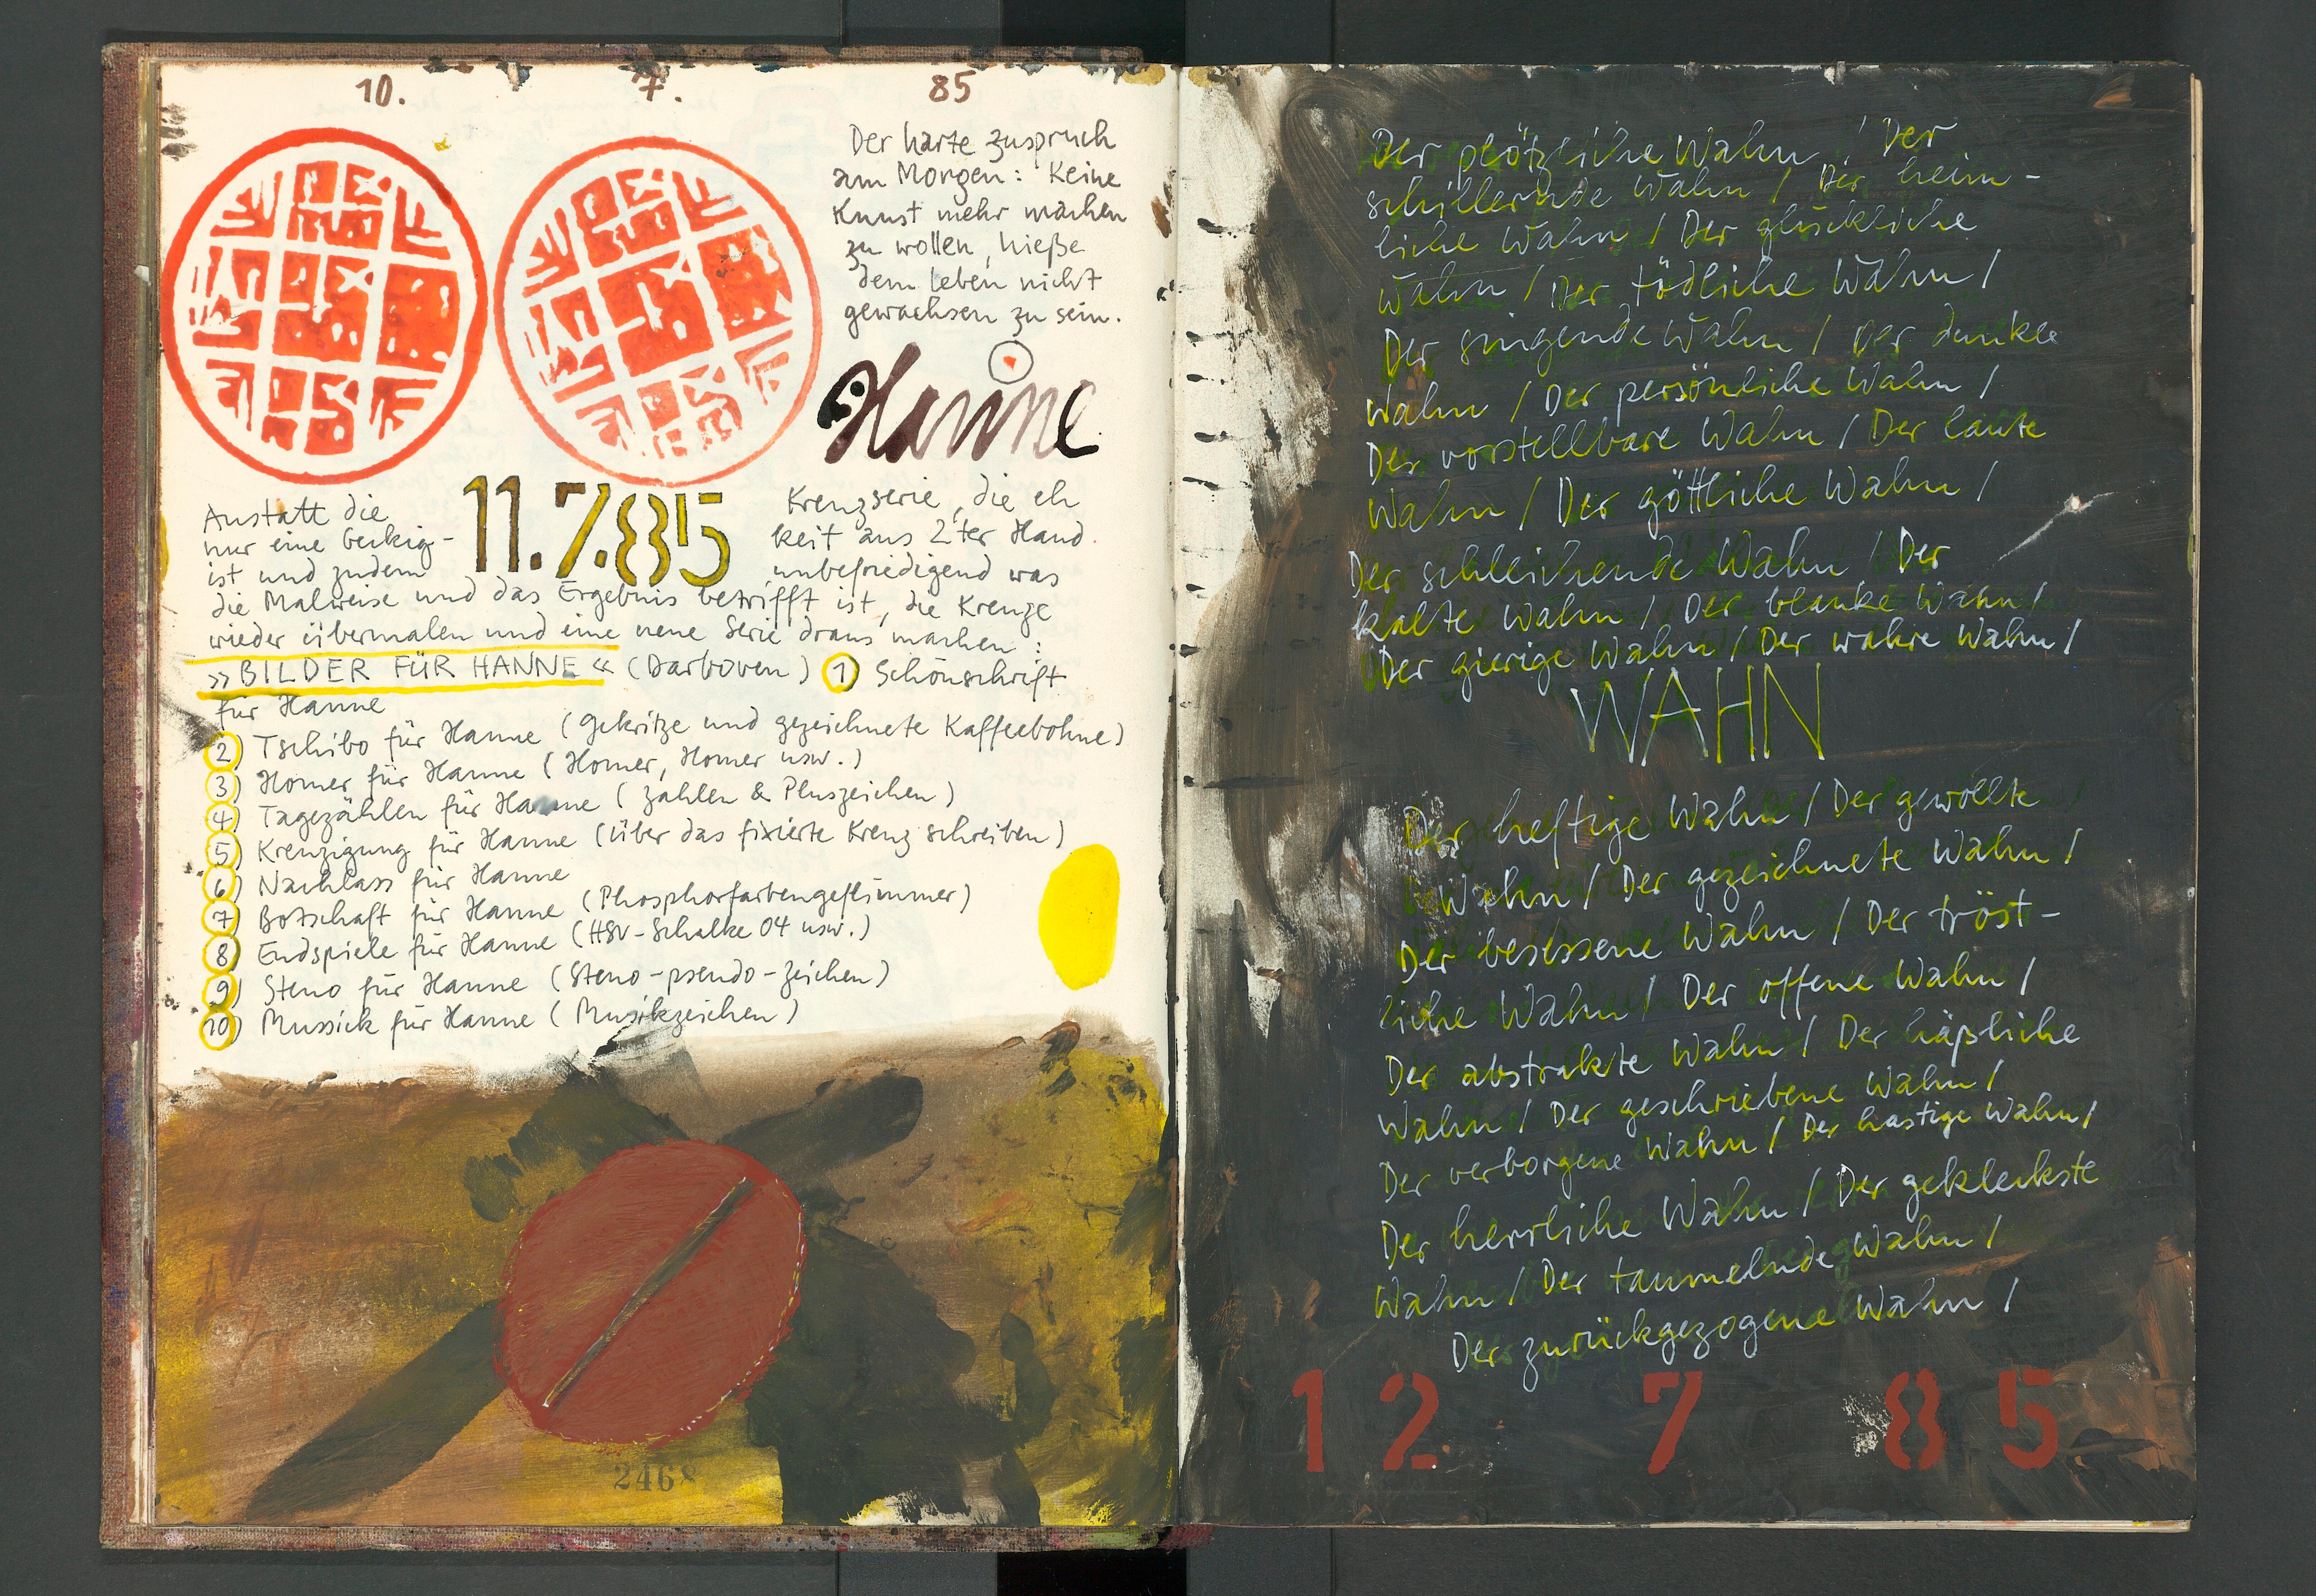 10. 7. 85
Der harte Zuspruch
am Morgen: Keine
Kunst mehr machen
zu wollen, hieße
dem Leben nicht
gewachsen zu sein.
Hanne
11.7.85
Anstatt die Kreuzserie, die eh
nur eine Beikig- keit aus 2ter Hand
ist und zudem unbefriedigend was
die Malweise und das Ergebnis betrifft ist, die Kreuze
wieder übermalen und eine neue Serie draus machen:
»BILDER FÜR HANNE« (Darboven) 1) Schönschrift
für Hanne
2) Tschibo für Hanne (Gekritze und gezeichnete Kaffeebohne)
3) Homer für Hanne (Homer, Homer usw.)
4) Tagezählen für Hanne (Zahlen & Pluszeichen)
5) Kreuzigung für Hanne (über das fixierte Kreuz schreiben)
6) Nachlass für Hanne
7) Botschaft für Hanne (Phosphorfarbengeflimmer)
8) Endspiele für Hanne (HSV-Schalke 04 usw.)
9) Steno für Hanne (Steno-pseudo-zeichen)
10) Mussick für Hanne (Musikzeichen)
2468
Der plötzliche Wahn / Der
schillernde Wahn / Der heim-
liche Wahn / Der glückliche
Wahn / Der tödliche Wahn /
Der singende Wahn / Der dunkle
Wahn / Der persönliche Wahn /
Der vorstellbare Wahn / Der laute
Wahn / Der göttliche Wahn /
Der schleichende Wahn / Der
kalte Wahn / Der blanke Wahn /
Der gierige Wahn / Der wahre Wahn /
WAHN
Der heftige Wahn / Der gewollte
Wahn / Der gezeichnete Wahn /
Der besessene Wahn / Der tröst-
liche Wahn / Der offene Wahn /
Der abstrakte Wahn / Der häßliche
Wahn / Der geschriebene Wahn /
Der verborgene Wahn / Der hastige Wahn /
Der herrliche Wahn / Der gekleckste
Wahn / Der taumelnde Wahn /
Der zurückgezogene Wahn /
12 7 85